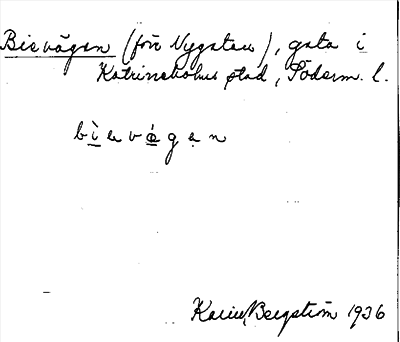 Bievägen (förr Nygatan), gata i
Katrineholms stad, Söderm. l.
bìevǿgen
Karin Bergström 1936